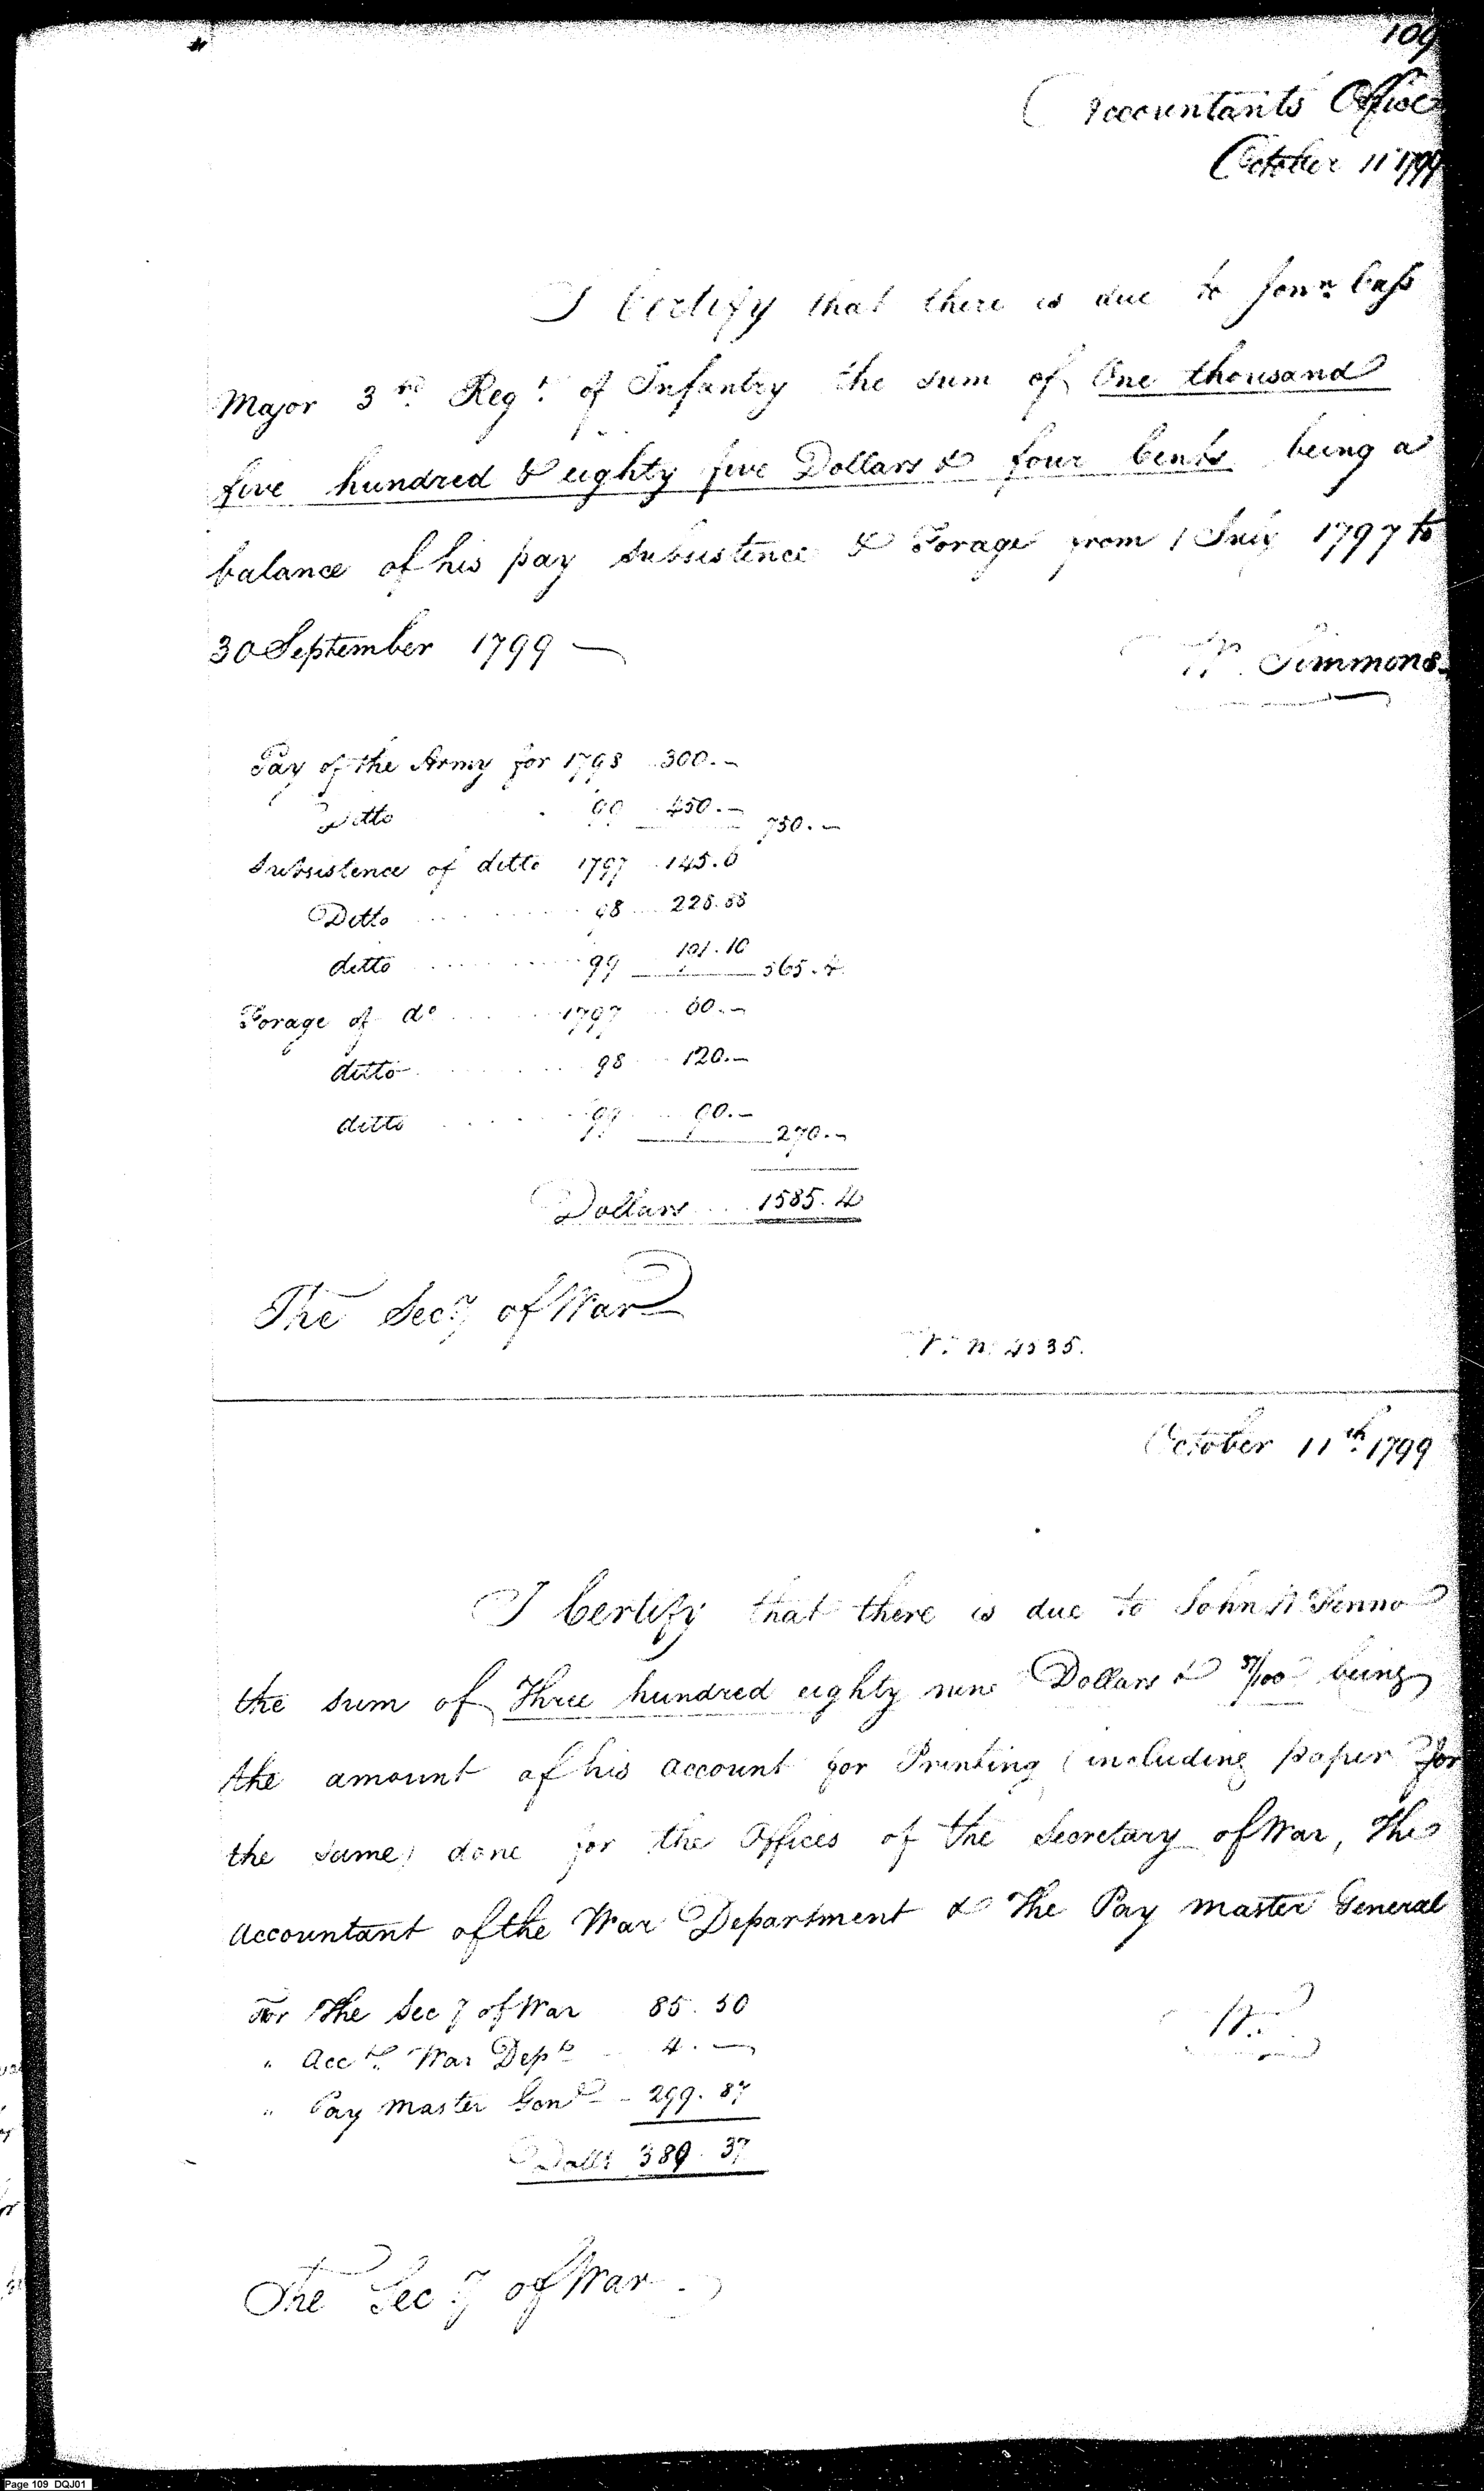 109
Accountants Office
October 11 1799
I Certify that there is due to Jonn. Cass
Major 3rd Regt. of Infantry the sum of One thousand
five hundred & eighty five Dollars & four Cents being a
balance of his pay subsistence & Forage from 1 July 1797 to
30 September 1799 —
W. Simmons
Pay of the Army for 1798 300.-
Ditto 99 450.- 750.-
Subsistence of ditto 1797 145.6
Ditto 98 228.88
ditto 99 191.10 565.4
Forage of do 1797 60.-
ditto 98 120.-
ditto 99 90.- 270.-
Dollars 1585.4
The Secy of War
October 11th. 1799
I Certify that there is due to John W Fenno
the sum of Three hundred eighty nine Dollars & 37/100 being
the amount of his account for Printing (including paper for
the same) done for the Offices of the Secretary of War, The
Accountant of the War Department & The Pay master General
W.
For The Secy of War 85.50
" Acct. War Dept. 4.-
" Pay master Genl - 299.87
Dolls 389.37
The Secy of War
Page 109 DQJ01